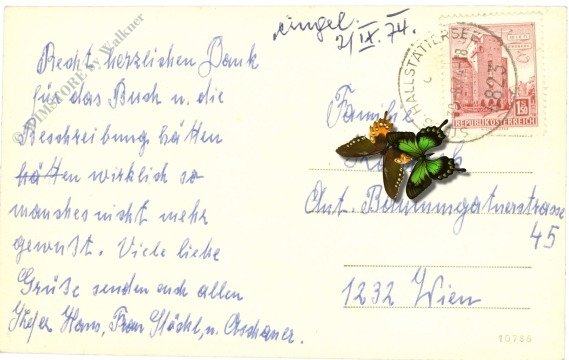 eingel.
2/IX. 74.
Recht herzlichen Dank
für das Buch u. die
Beschreibung, hätten
hätten wirklich so
manches nicht mehr
gewußt. Viele liebe
Grüße senden euch allen
Hans, Frau u.
© PIMSTORE by Walkner
HALLSTÄTTERSEE
4823
150
REPUBLIK ÖSTERREICH
Familie
Ant. Baumgartnerstrasse
45
1232 Wien
10785